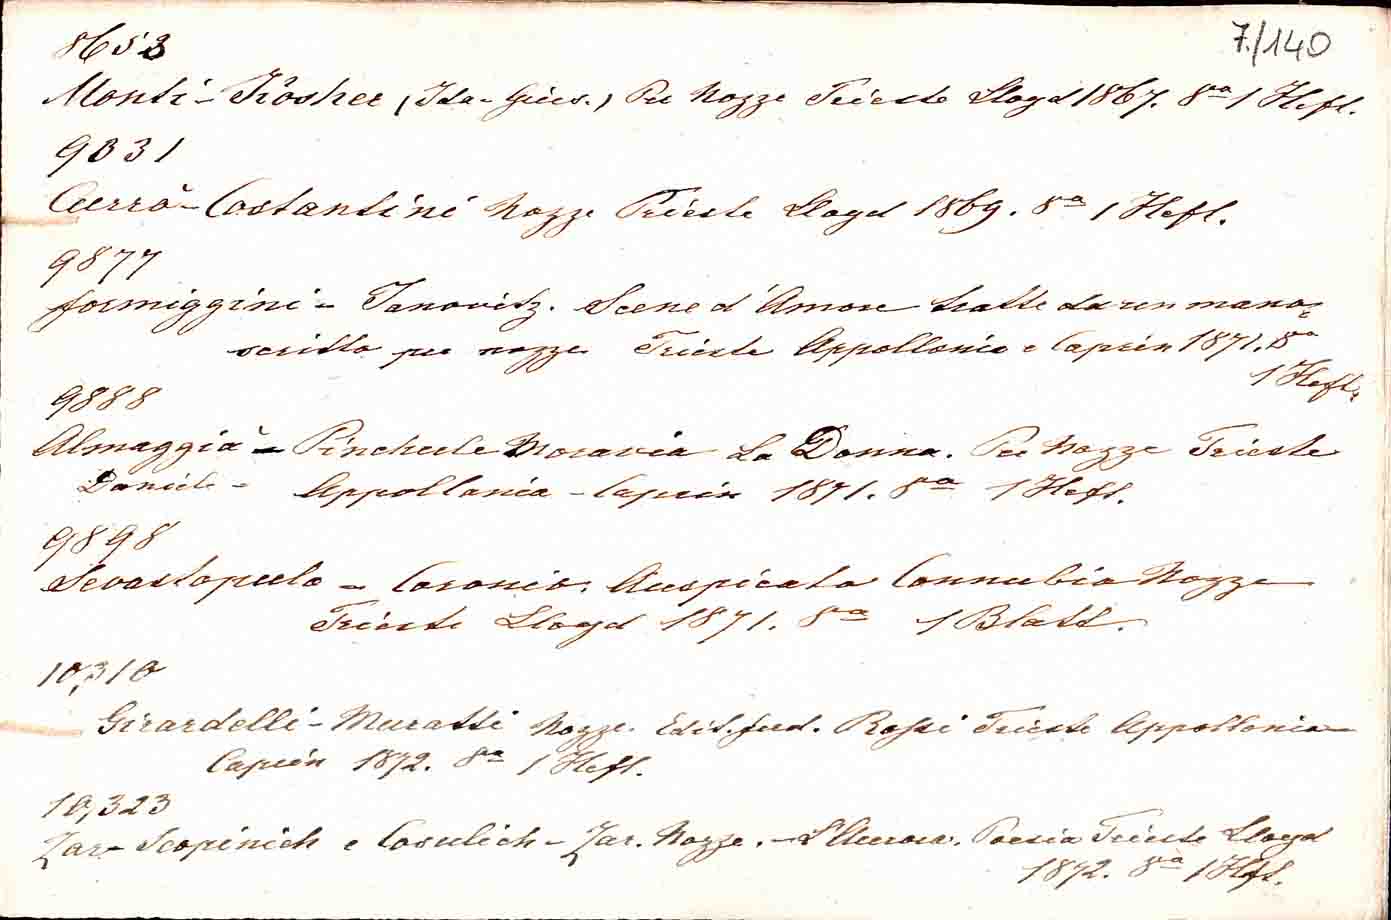 7./140
8653
Monti - Kösker (Ida - Gius.) Per Nozze Trieste Lloyd 1867. 8va 1 Heft.
9331
Currò - Costantini Nozze Trieste Lloyd 1869. 8a 1 Heft.
9877
Formiggini - Janovitz. Scene d'Amore tratte da un mano=
scritto per nozze Trieste Appollonio e Caprin 1871. 8va
1 Heft.
9888
Almaggià - Pincherle Moravia La Donna. Per Nozze Trieste
Daniele - Appollonio - Caprin 1871. 8va 1 Heft.
9898
Sevastopulo - Coronio. Auspicato Connubio Nozze
Trieste Lloyd 1871. 8va 1 Blatt.
10,310
Girardelli - Muratti Nozze. Edit. Rossi Trieste Appollonio
Caprin 1872. 8va 1 Heft.
10,323
Zar - Scopinich e Cosulich - Zar. Nozze. - L'Aurora. Poesia Trieste Lloyd
1872. 8va 1 Hft.